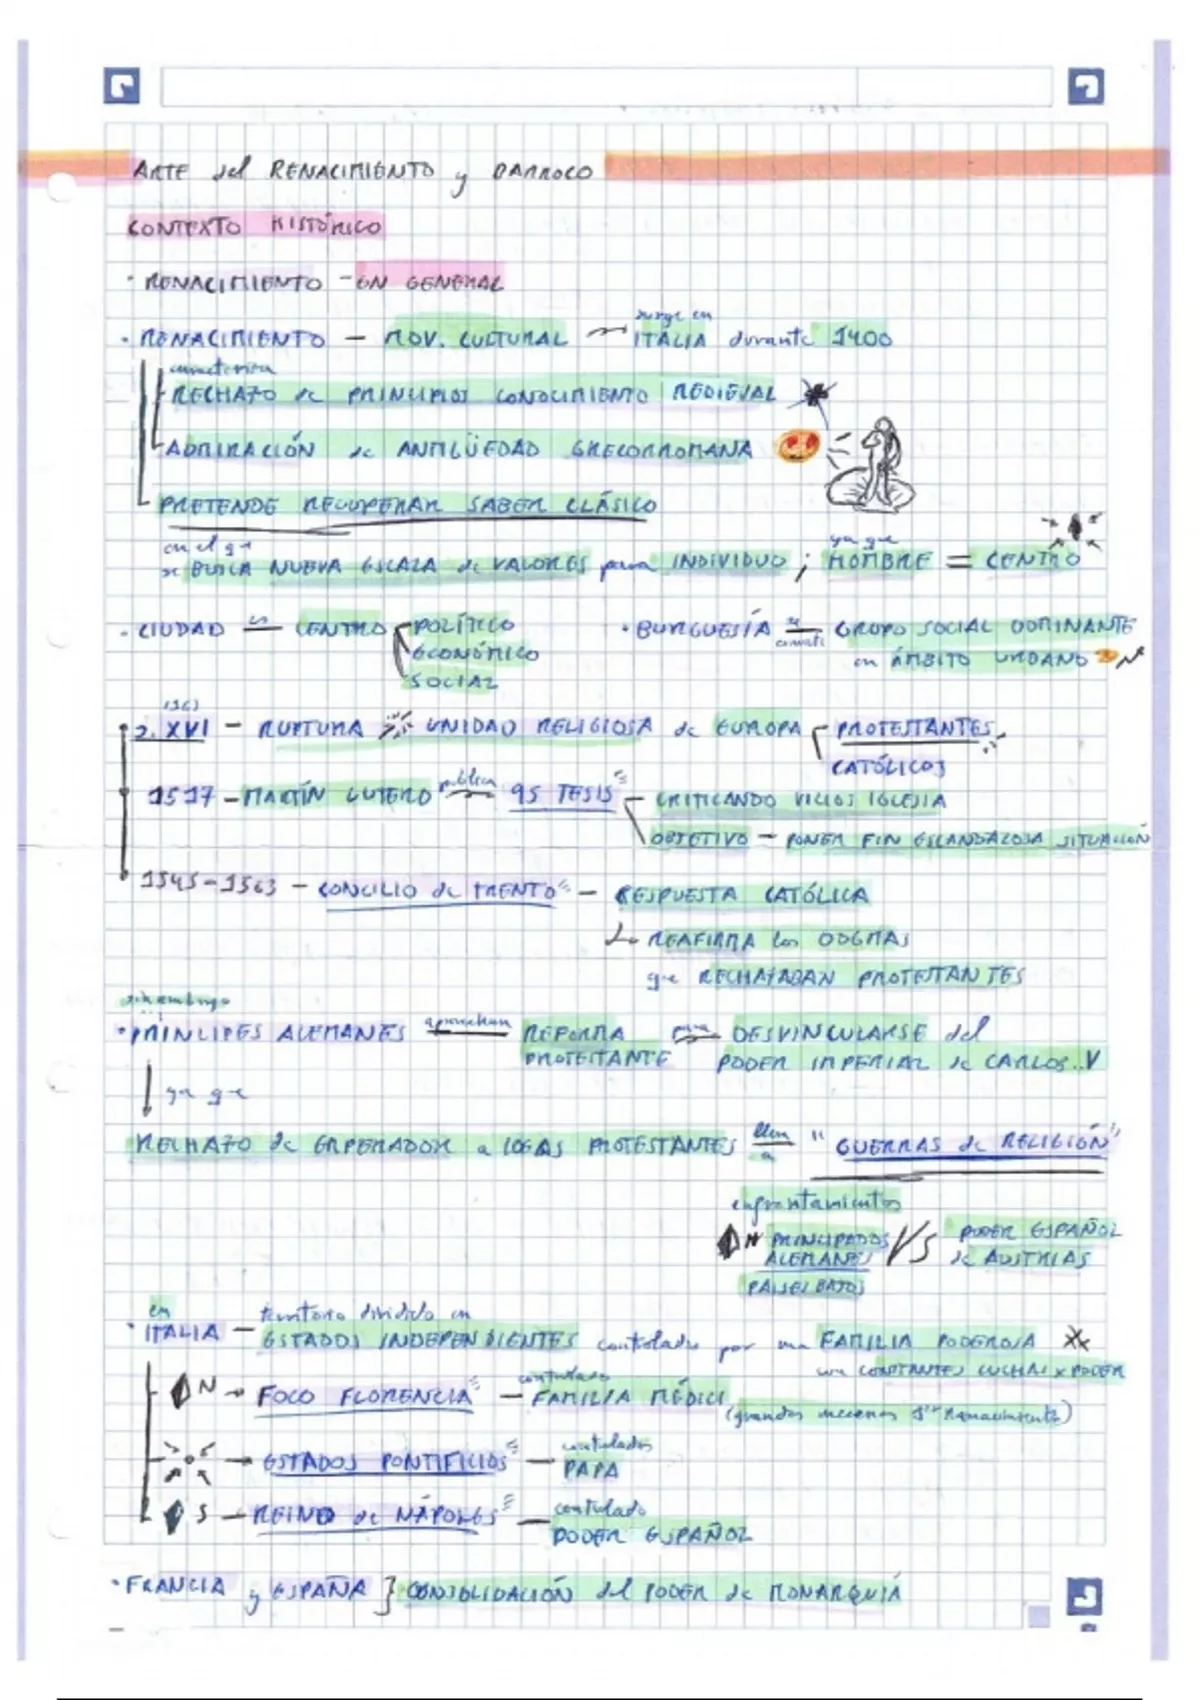 ARTE del RENACIMIENTO y BARROCO
CONTEXTO HISTÓRICO
· RENACIMIENTO - EN GENERAL
· RENACIMIENTO — MOV. CULTURAL surge en ITALIA durante 1400
caracteriza
RECHAZO de PRINCIPIOS CONOCIMIENTO MEDIEVAL
ADMIRACIÓN de ANTIGÜEDAD GRECORROMANA
PRETENDE RECUPERAR SABER CLÁSICO
en el que ya que
se BUSCA NUEVA ESCALA de VALORES para INDIVIDUO ; HOMBRE = CENTRO
· CIUDAD es CENTRO POLÍTICO
ECONÓMICO
SOCIAL
· BURGUESÍA se GRUPO SOCIAL DOMINANTE
en ÁMBITO URBANO
(16)
S. XVI — RUPTURA UNIDAD RELIGIOSA de EUROPA PROTESTANTES
CATÓLICOS
1517 — MARTÍN LUTERO publica 95 TESIS" CRITICANDO VICIOS IGLESIA
OBJETIVO — PONER FIN ESCANDALOSA SITUACIÓN
1545-1563 — CONCILIO de TRENTO" — RESPUESTA CATÓLICA
REAFIRMA los DOGMAS
que RECHAZABAN PROTESTANTES
sin embargo
· PRINCIPES ALEMANES aprovechan REFORMA PROTESTANTE para DESVINCULARSE del
PODER IMPERIAL de CARLOS V
ya que
RECHAZO de EMPERADOR a IDEAS PROTESTANTES lleva a "GUERRAS de RELIGIÓN"
enfrentamientos
N PRINCIPADOS ALEMANES VS PODER ESPAÑOL
de AUSTRIAS
PAISES BAJOS
en territorio dividido en
· ITALIA — ESTADOS INDEPENDIENTES controlados por una FAMILIA PODEROSA
con CONSTANTES LUCHAS x PODER
N → FOCO FLORENCIA" — controlado FAMILIA MÉDICI
(grandes mecenas 1er Renacimiento)
→ ESTADOS PONTIFICIOS" — controlados
PAPA
S — REINO de NÁPOLES" — controlado
PODER ESPAÑOL
· FRANCIA y ESPAÑA } CONSOLIDACIÓN del PODER de MONARQUÍA